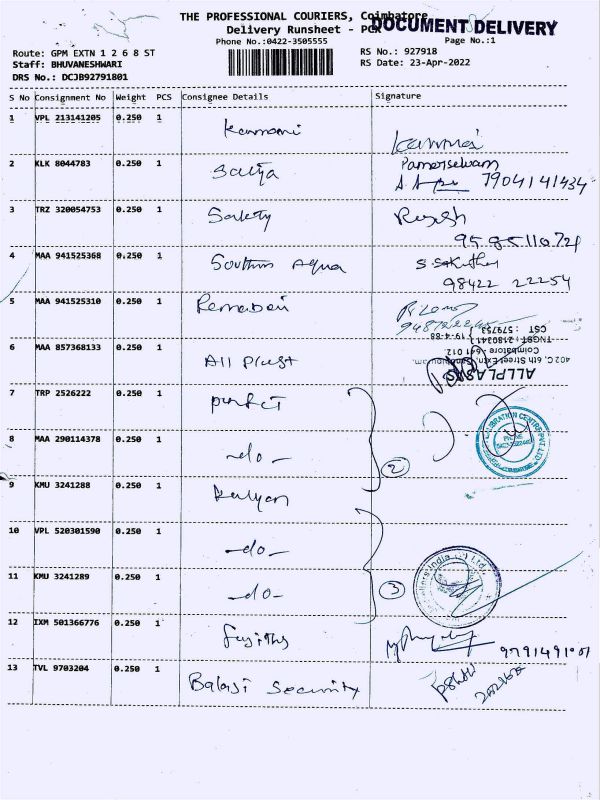 THE PROFESSIONAL COURIERS, Coimbatore
Delivery Runsheet - PCX
DOCUMENT DELIVERY
Phone No.:0422-3505555
Page No.:1
Route: GPM EXTN 1 2 6 8 ST
RS No.: 927918
Staff: BHUVANESHWARI
RS Date: 23-Apr-2022
DRS No.: DCJB92791801
S No Consignment No Weight PCS Consignee Details Signature
1 VPL 213141205 0.250 1 Kanmani
2 KLK 8044783 0.250 1 Satya
7904141434
3 TRZ 320054753 0.250 1 Safety Rajesh
4 MAA 941525368 0.250 1 Southern Aqua
98422 22254
5 MAA 941525310 0.250 1 Ramabai
CST : 579753
6 MAA 857368133 0.250 1 All Plast
402 C, 6th Street Extn.
Coimbatore - 641 012.
7 TRP 2526222 0.250 1 perfect
8 MAA 290114378 0.250 1 -do- 2
9 KMU 3241288 0.250 1 Kalyan
10 VPL 520301590 0.250 1 -do-
11 KMU 3241289 0.250 1 -do- 3
12 IXM 501366776 0.250 1
13 TVL 9703204 0.250 1 Balaji Security